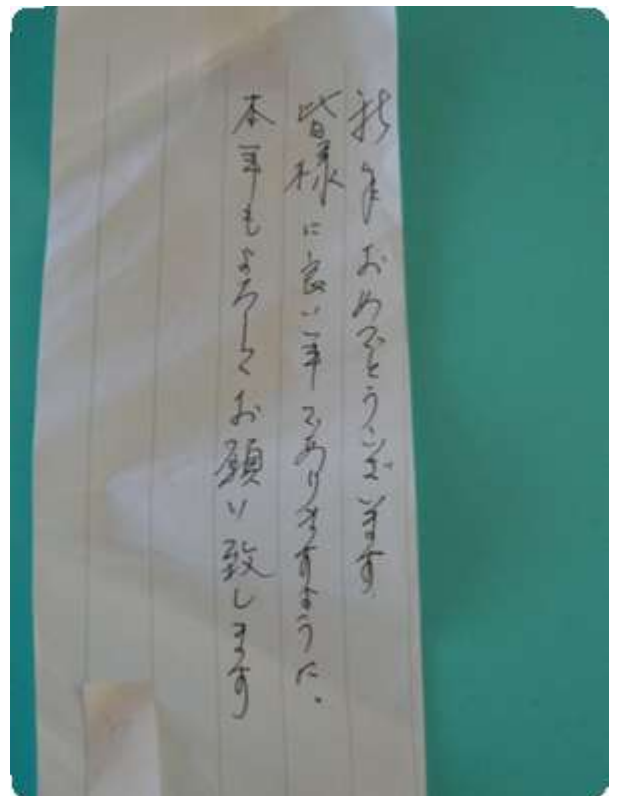 新年おめでとうございます
皆様に良い年でありますように。
本年もよろしくお願い致します